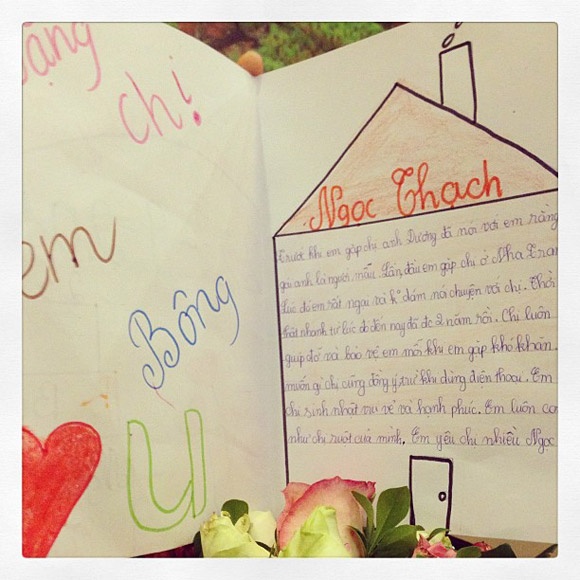 ặng
chị!
em
Bông
U
Ngọc Thạch
Trước khi em gặp chị anh Dương đã nói với em rằng
gái anh là người mẫu. Lần đầu em gặp chị ở Nha Tran
Lúc đó em rất ngại và k° dám nói chuyện với chị. Thời
thật nhanh từ lúc đó đến nay đã đc 2 năm rồi. Chị luôn
giúp đỡ và bảo vệ em mỗi khi em gặp khó khăn.
muốn gì chị cũng đồng ý trừ khi dùng điện thoại. Em
chị sinh nhật vui vẻ và hạnh phúc. Em luôn co
như chị ruột của mình. Em yêu chị nhiều Ngọc